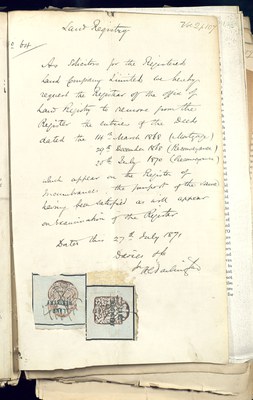 Land Registry
As solicitors for the Registered
Land Company Limited we hereby
request the Registrar of the office of
Land Registry to remove from the
Register the entries of the Deeds
dated the 14th March 1868 (Mortgage)
29th December 1868 (Reconveyance)
25th July 1870 (Reconveyance)
which appear on the Register of
Incumbrances the purport of the same
having been satisfied as will appear
on examination of the Register
Dated this 27th July 1871
Davies &
Darlington